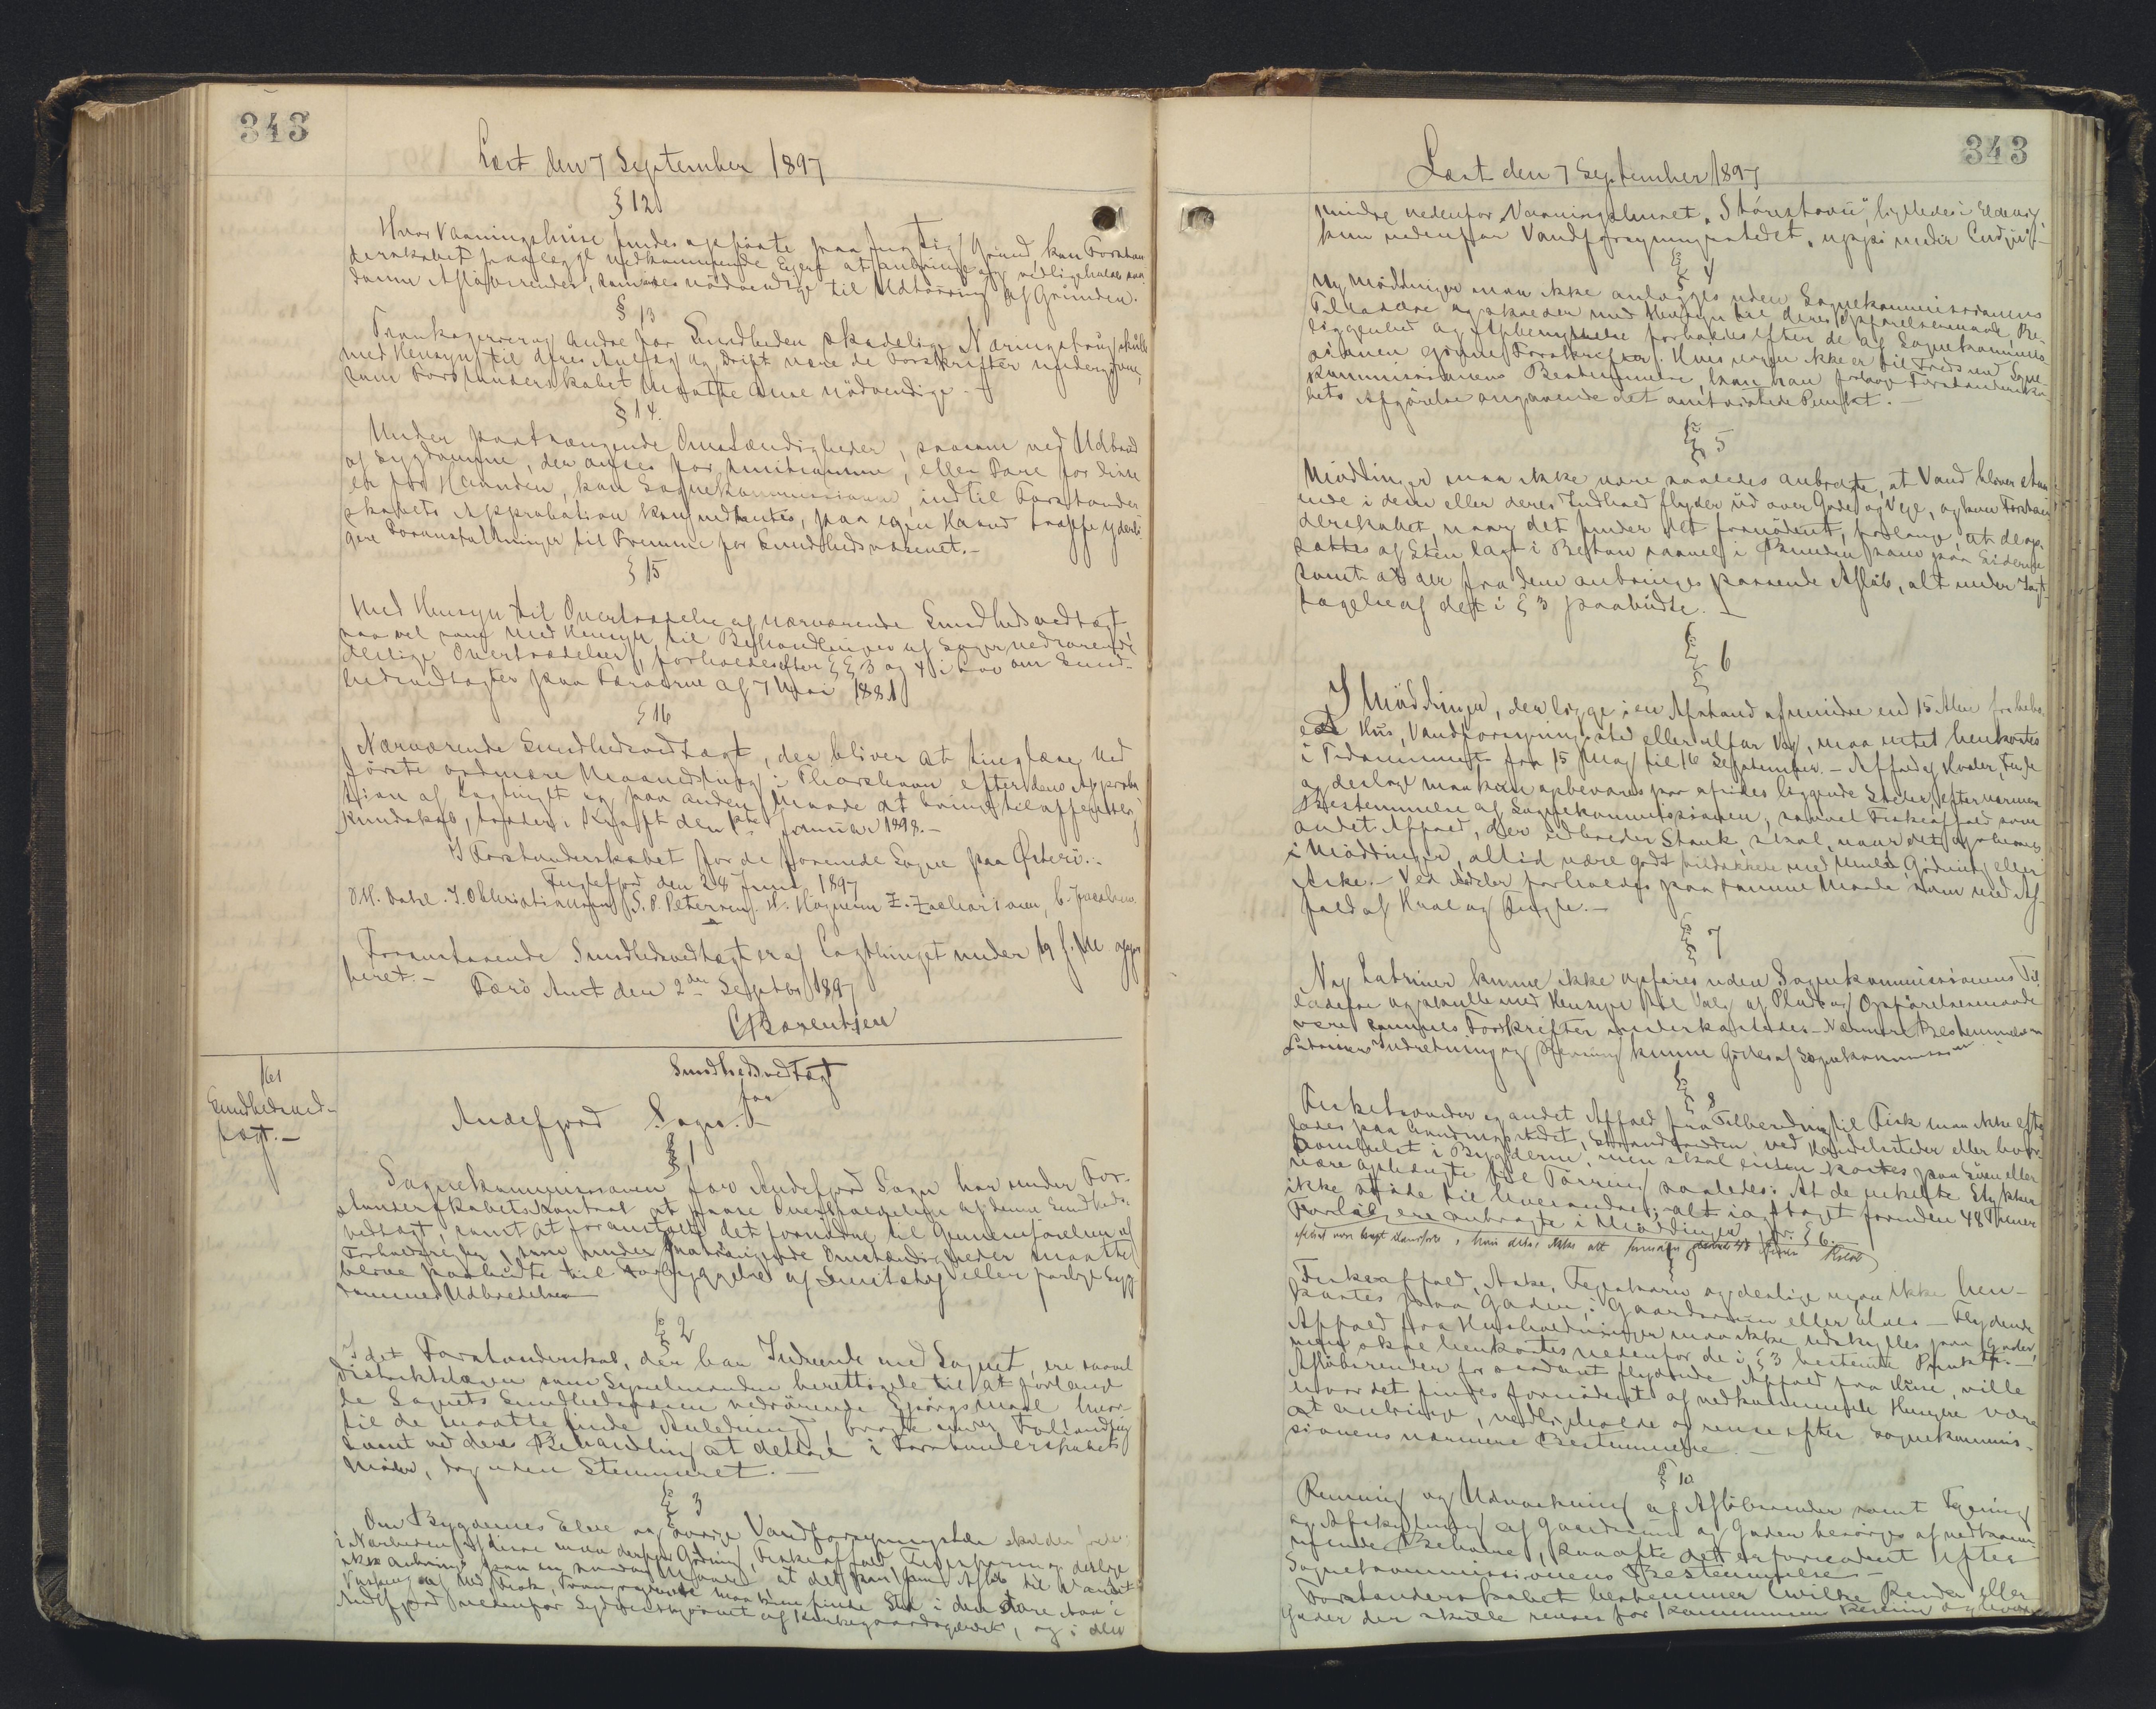 343
Læst den 7 September 1897
§ 12
Hvor Vaaningshuse findes opførte paa fugtig Grund, kan Forstan-
derskabet paalægge vedkommende Ejere at anbringe og vedligeholde saa-
danne Afløbsrender, som ansees nødvendige til Udtørring af Grunden.
§ 13
Trankogerier og andre for Sundheden skadelige Næringsbrug skulle
med Hensyn til deres Anlæg og Drift være de Forskrifter undergivne,
som Forstanderskabet maatte anse nødvendige.-
§ 14.
Under paatrængende Omstændigheder, saasom ved Udbrud
af Sygdomme, der anses for smitsomme, eller Fare for disse
er for Haanden, kan Sognekommissionen, indtil Forstander
skabets Approbation kan indhentes, paa egen Haand træffe yderli-
gere Foranstaltninger til Fremme for Sundhedsvæsenet.-
§ 15
Med Hensyn til Overtrædelse af nærværende Sundhedsvedtægt,
saavel som med Hensyn til Behandlingen af Sager vedrørende
deslige Overtrædelser, forholdes efter §§ 3 og 4 i Lov om Sund-
hedsvedtægter paa Færøerne af 7 Mai 1881
§ 16
Nærværende Sundhedsvedtægt, der bliver at tinglæse ved
første ordinære Maanedsting i Thorshavn efter dens Approba
tion af Lagtinget og paa anden Maade at bringe til offentlig
Kundskab, træder i Kraft den 1ste Januar 1898.-
I Forstanderskabet for de forenede Sogne paa Østerø.
Fuglefjord den 28 Juni 1897
J. Christiansen J. P. Petersen. Z. Zachariasen, C. Jacobsen.
Foranstaaende Sundhedsvedtægt er af Lagthinget under 19 f. M. appro
beret.- Færø Amt den 2den Septbr 1897
C Bærentsen
Sundhedsved-
tægt.-
Sundhedsvedtægt
for
Andefjord Sogn.-
§ 1
Sognekommissionen for Andefjord Sogn har under For-
standerskabets Kontrol at paase Overholdelsen af denne Sundheds-
vedtægt, samt at foranstalte det fornødne til Gennemførelsen af
Forholdsregler, som under paatrængende Omstændigheder maatte
blive paabudte til Forbyggelse af Smitsot eller farlige Syg
dommes Udbredelse
§ 2
I det Forstanderskab, der har Indseende med Sognet, ere saavel
Distriktslægen som Sysselmanden berettigede til at forlange
de Sognets Sundhedsvæsen vedrørende Spørgsmaal, hvor
til de maatte finde Anledning, bragte under Forhandling
samt ved deres Behandling at deltage i Forstanderskabets
Møder, dog uden Stemmeret.-
§ 3
Om Bygdernes Elve og øvrige Vandforsyningssteder
i Nærheden af disse maa derfor Gødning, Fiskeaffald, Fejeskarn og deslige
ikke anbringes paa en saadan Maade at det kan faa Afløb til Vandet
Vasken af Uld, Fisk, maa kun finde Sted i den store Aa i
Andefjord nedenfor Sydvesthjørnet af Kirkegaardsgærdet, og i den
343
Læst den 7 September 1897
mindre nedenfor Vaaningshuset "Stórustovu", ligeledes i Eldevig
kun nedenfor Vandforsyningsstedet
§ 4
Ny Møddinger maa ikke anlægges uden Sognekommissionens
Tilladelse og skal der med Hensyn til deres Opførelsesmaade, Be-
liggenhed og Afbenyttelse forholdes efter de af Sognekommis-
sionen givne Forskrifter. Hvis nogen ikke er tilfreds med Sogne-
kommissionens Bestemmelse, kan han forlange Forstanderska-
bets Afgørelse angaaende det omtvistede Punkt.-
§ 5
Møddinger maa ikke være saaledes anbragte, at Vand bliver staa
ende i dem eller deres Indhold flyder ud over Gader og Veje, og kan Forstan
derskabet, naar det finder det fornødent, forlange, at de op-
sættes af Sten lagt i Beton saavel i Bunden som paa Siderne
samt at der fra dem anbringes passende Afløb, alt under Iagt-
tagelse af det i § 3 paabudte.-
§ 6
I Møddinger, der ligge i en Afstand af mindre end 15 Alen fra bebo-
et Hus, Vandforsyningssted eller alfar Vej, maa intet henkastes
i Tidsrummet fra 15 Maj til 16 September.- Affald af Hvaler, Fugle
og deslige maa kun opbevares paa afsides liggende Steder, efter nærmere
Bestemmelse af Sognekommissionen, saavel Fiskeaffald som
andet Affald, der udbreder Stank, skal, naar det opbevares
i Møddinger, altid være godt tildækket med Muld, Gødning eller
Aske.- Ved Aadsler forholdes paa samme Maade som med Af-
fald af Hval og Fugle.-
§ 7
Nye Latriner kunne ikke opføres uden Sognekommissionens Til-
ladelse og skulle med Hensyn til Valg af Plads og Opførelsesmaade
være sammes Forskrifter underkastede.- Nærmere Bestemmelse om
Latriners Indretning og Rensning kunne gives af Sognekommissionen
§ 8
Fiskehoveder og andet Affald fra Tilberedning til Fisk maa ikke efter
lades paa Landingsstedet, Strandbredden ved Handelssteder eller hvor
somhelst i Bygderne, men skal enten kastes paa Søen eller
være ophængte til Tørring saaledes: At de enkelte Stykker
ikke støde til hverandre; alt iagttaget forinden 48 Timer
Forløb, ere anbragte i Møddinger, jfr. § 6.
§ 9
Fiskeaffald, Aske, Fejeskarn og deslige maa ikke hen-
kastes paa Gaden, i Gaardsrum eller Elve.- Flydende
Affald fra Husholdninger maa ikke udskylles paa Gader,
men skal henkastes nedenfor de i § 3 bestemte Punkter.-
Afløbsrender for saadant flydende Affald fra Huse, ville
hvor det findes fornødent af vedkommende Husejere være
at anbringe, vedligeholde og rense efter Sognekommis-
sionens nærmere Bestemmelse.-
§ 10
Rensning og Udvaskning af Afløbsrender samt Fejning
og Afskylning af Gaardsrum og Gader besørges af vedkom-
mende Beboere, saa ofte det er fornødent efter
Sognekommissionens Bestemmelse.-
Forstanderskabet bestemmer hvilke Render eller
Gader der skulle renses for Kommunens Regning og hvor